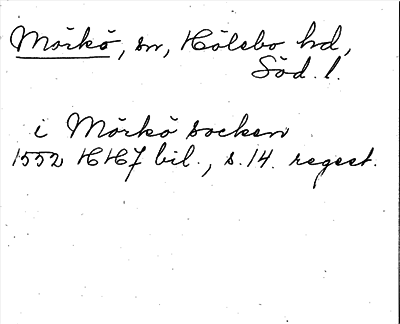 Mörkö, sn, Hölebo hd,
Söd. l.
i Mörkö socken
1552 HH7 bil., s. 14. regest.